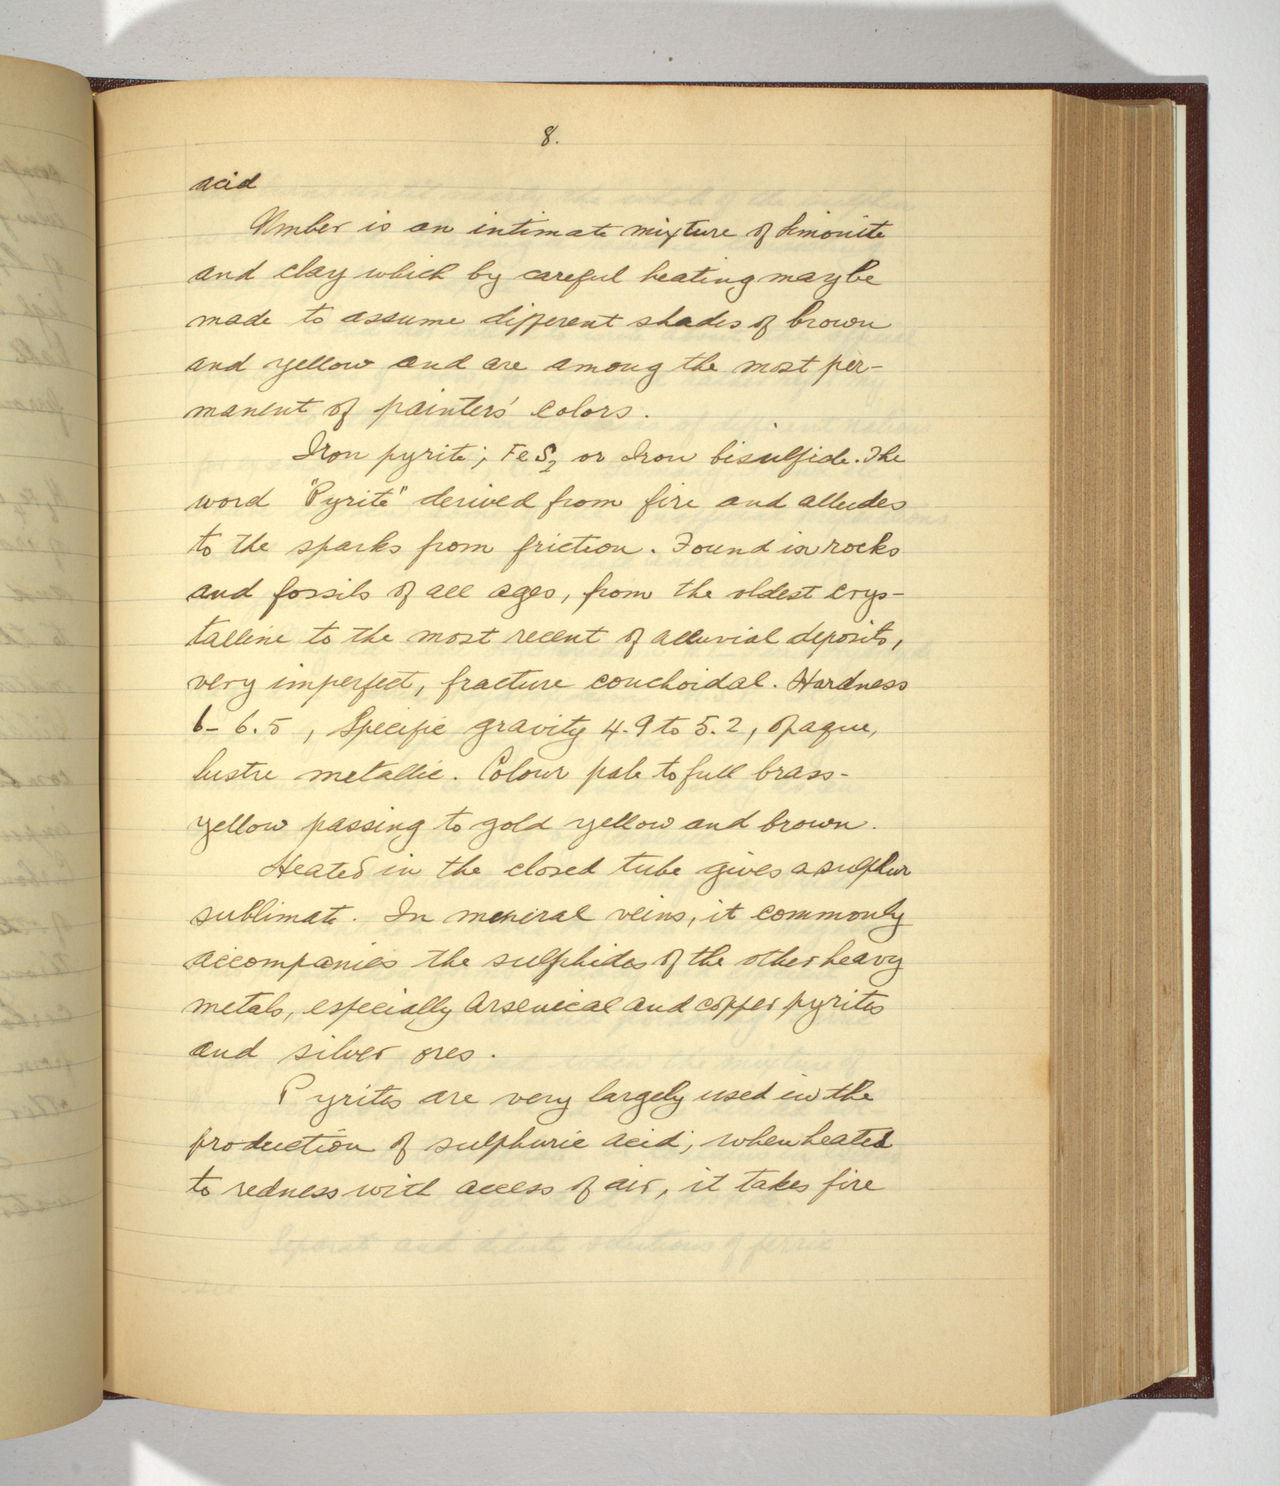 8.
acid
Umber is an intimate mixture of limonite
and clay which by careful heating may be
made to assume different shades of brown
and yellow and are among the most per-
manent of painters' colors.
Iron pyrite; FeS2 or Iron bisulfide. The
word "Pyrite" derived from fire and alludes
to the sparks from friction. Found in rocks
and fossils of all ages, from the oldest crys-
talline to the most recent of alluvial deposits,
very imperfect, fracture conchoidal. Hardness
6-6.5, Specific gravity 4.9 to 5.2, opaque,
lustre metallic. Colour pale to full brass-
yellow passing to gold yellow and brown.
Heated in the closed tube gives a sulphur
sublimate. In mineral veins, it commonly
accompanies the sulphides of the other heavy
metals, especially Arsenical and copper pyrites
and silver ores.
Pyrites are very largely used in the
production of sulphuric acid; when heated
to redness with access of air, it takes fire